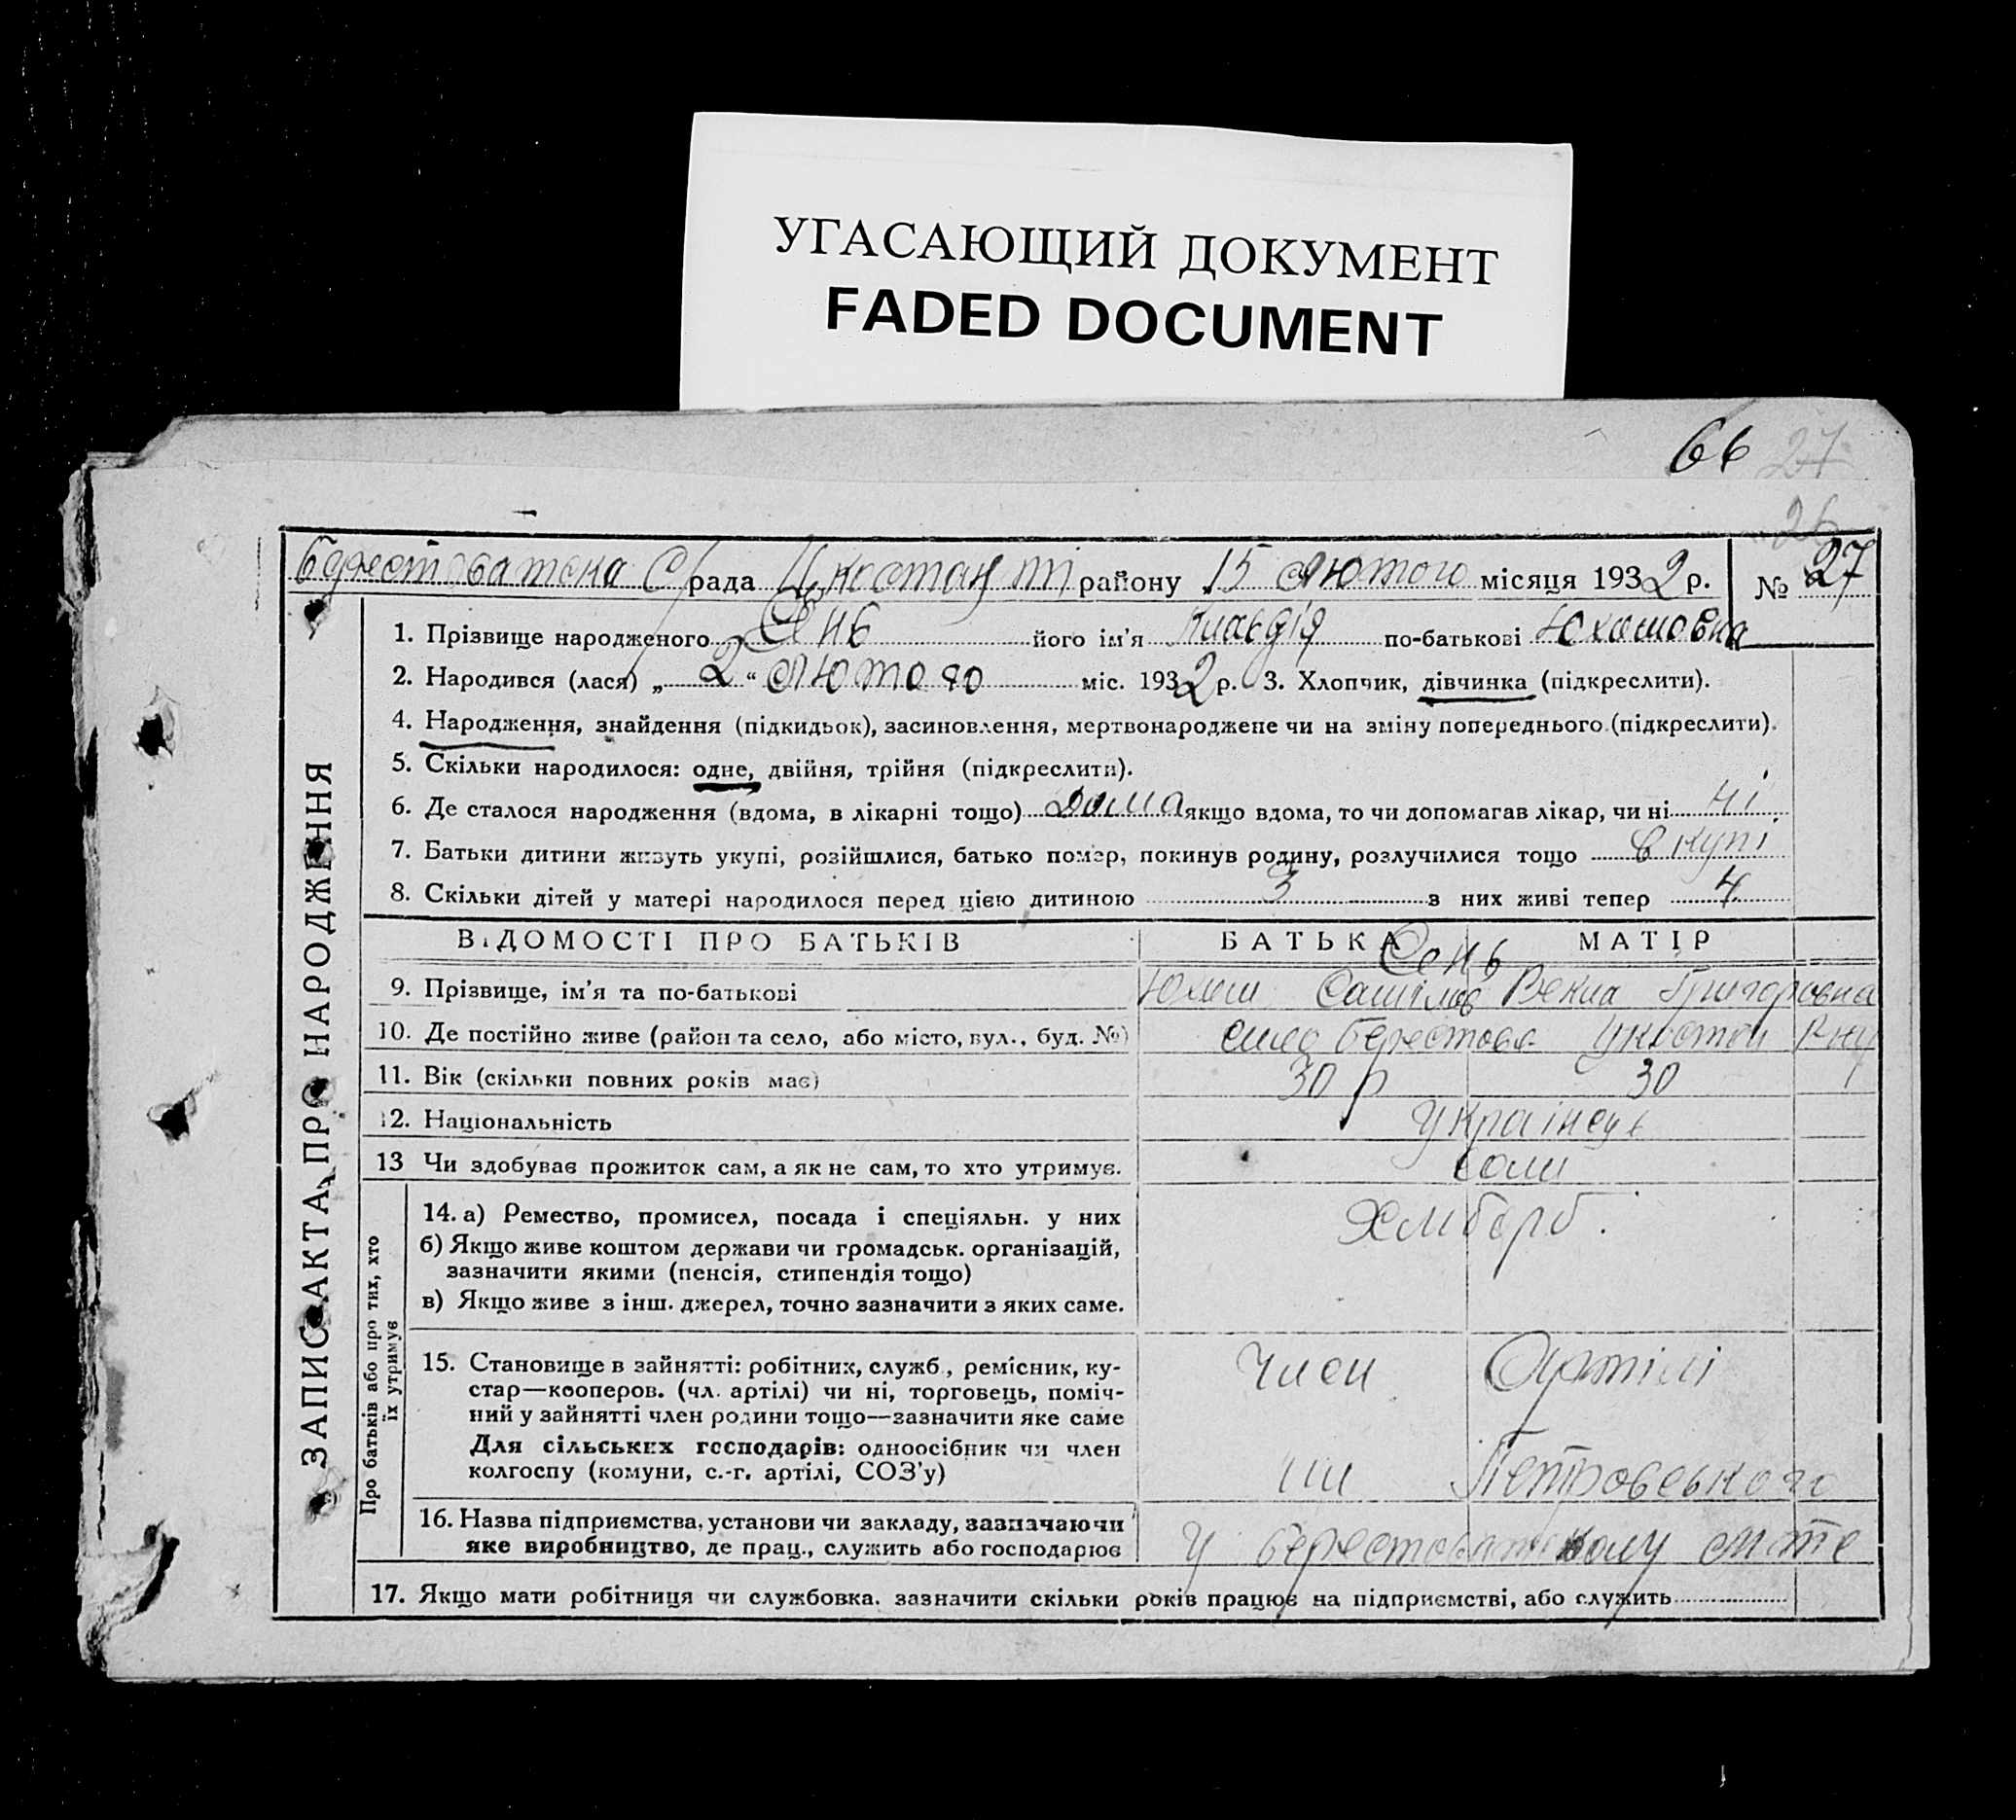 УГАСАЮЩИЙ ДОКУМЕНТ
FADED DOCUMENT
66 27
26
С/рада району 15 Лютого місяця 1932 р. № 27
ЗАПИС АКТА ПРО НАРОДЖЕННЯ
1. Прізвище народженого його ім'я Клавдія по-батькові
2. Народився (лася) „2“ Лютого міс. 1932 р. 3. Хлопчик, дівчинка (підкреслити).
4. Народження, знайдення (підкидьок), засиновлення, мертвонароджене чи на зміну попереднього (підкреслити).
5. Скільки народилося: одне, двійня, трійня (підкреслити).
6. Де сталося народження (вдома, в лікарні тощо) дома якщо вдома, то чи допомагав лікар, чи ні ні
7. Батьки дитини живуть укупі, розійшлися, батько помер, покинув родину, розлучилися тощо вкупі
8. Скільки дітей у матері народилося перед цією дитиною 3 з них живі тепер 4
ВІДОМОСТІ ПРО БАТЬКІВ БАТЬКА МАТІР
Сень
9. Прізвище, ім'я та по-батькові Григоровна
10. Де постійно живе (район та село, або місто, вул., буд. №) село
11. Вік (скільки повних років має) 30 р 30
12. Національність Українці
13 Чи здобуває прожиток сам, а як не сам, то хто утримує. сами
Про батьків або про тих, хто
їх утримує
14. а) Ремество, промисел, посада і спеціяльн. у них Хлібороб.
б) Якщо живе коштом держави чи громадськ. організацій,
зазначити якими (пенсія, стипендія тощо)
в) Якщо живе з інш. джерел, точно зазначити з яких саме.
15. Становище в зайнятті: робітник, служб., ремісник, ку-
стар—кооперов. (чл. артілі) чи ні, торговець, поміч-
ний у зайнятті член родини тощо—зазначити яке саме
Для сільських господарів: одноосібник чи член
колгоспу (комуни, с.-г. артілі, СОЗ'у)
Член Артілі
Петровського
16. Назва підприємства, установи чи закладу, зазначаючи
яке виробництво, де прац., служить або господарює
у
17. Якщо мати робітниця чи службовка, зазначити скільки років працює на підприємстві, або служить